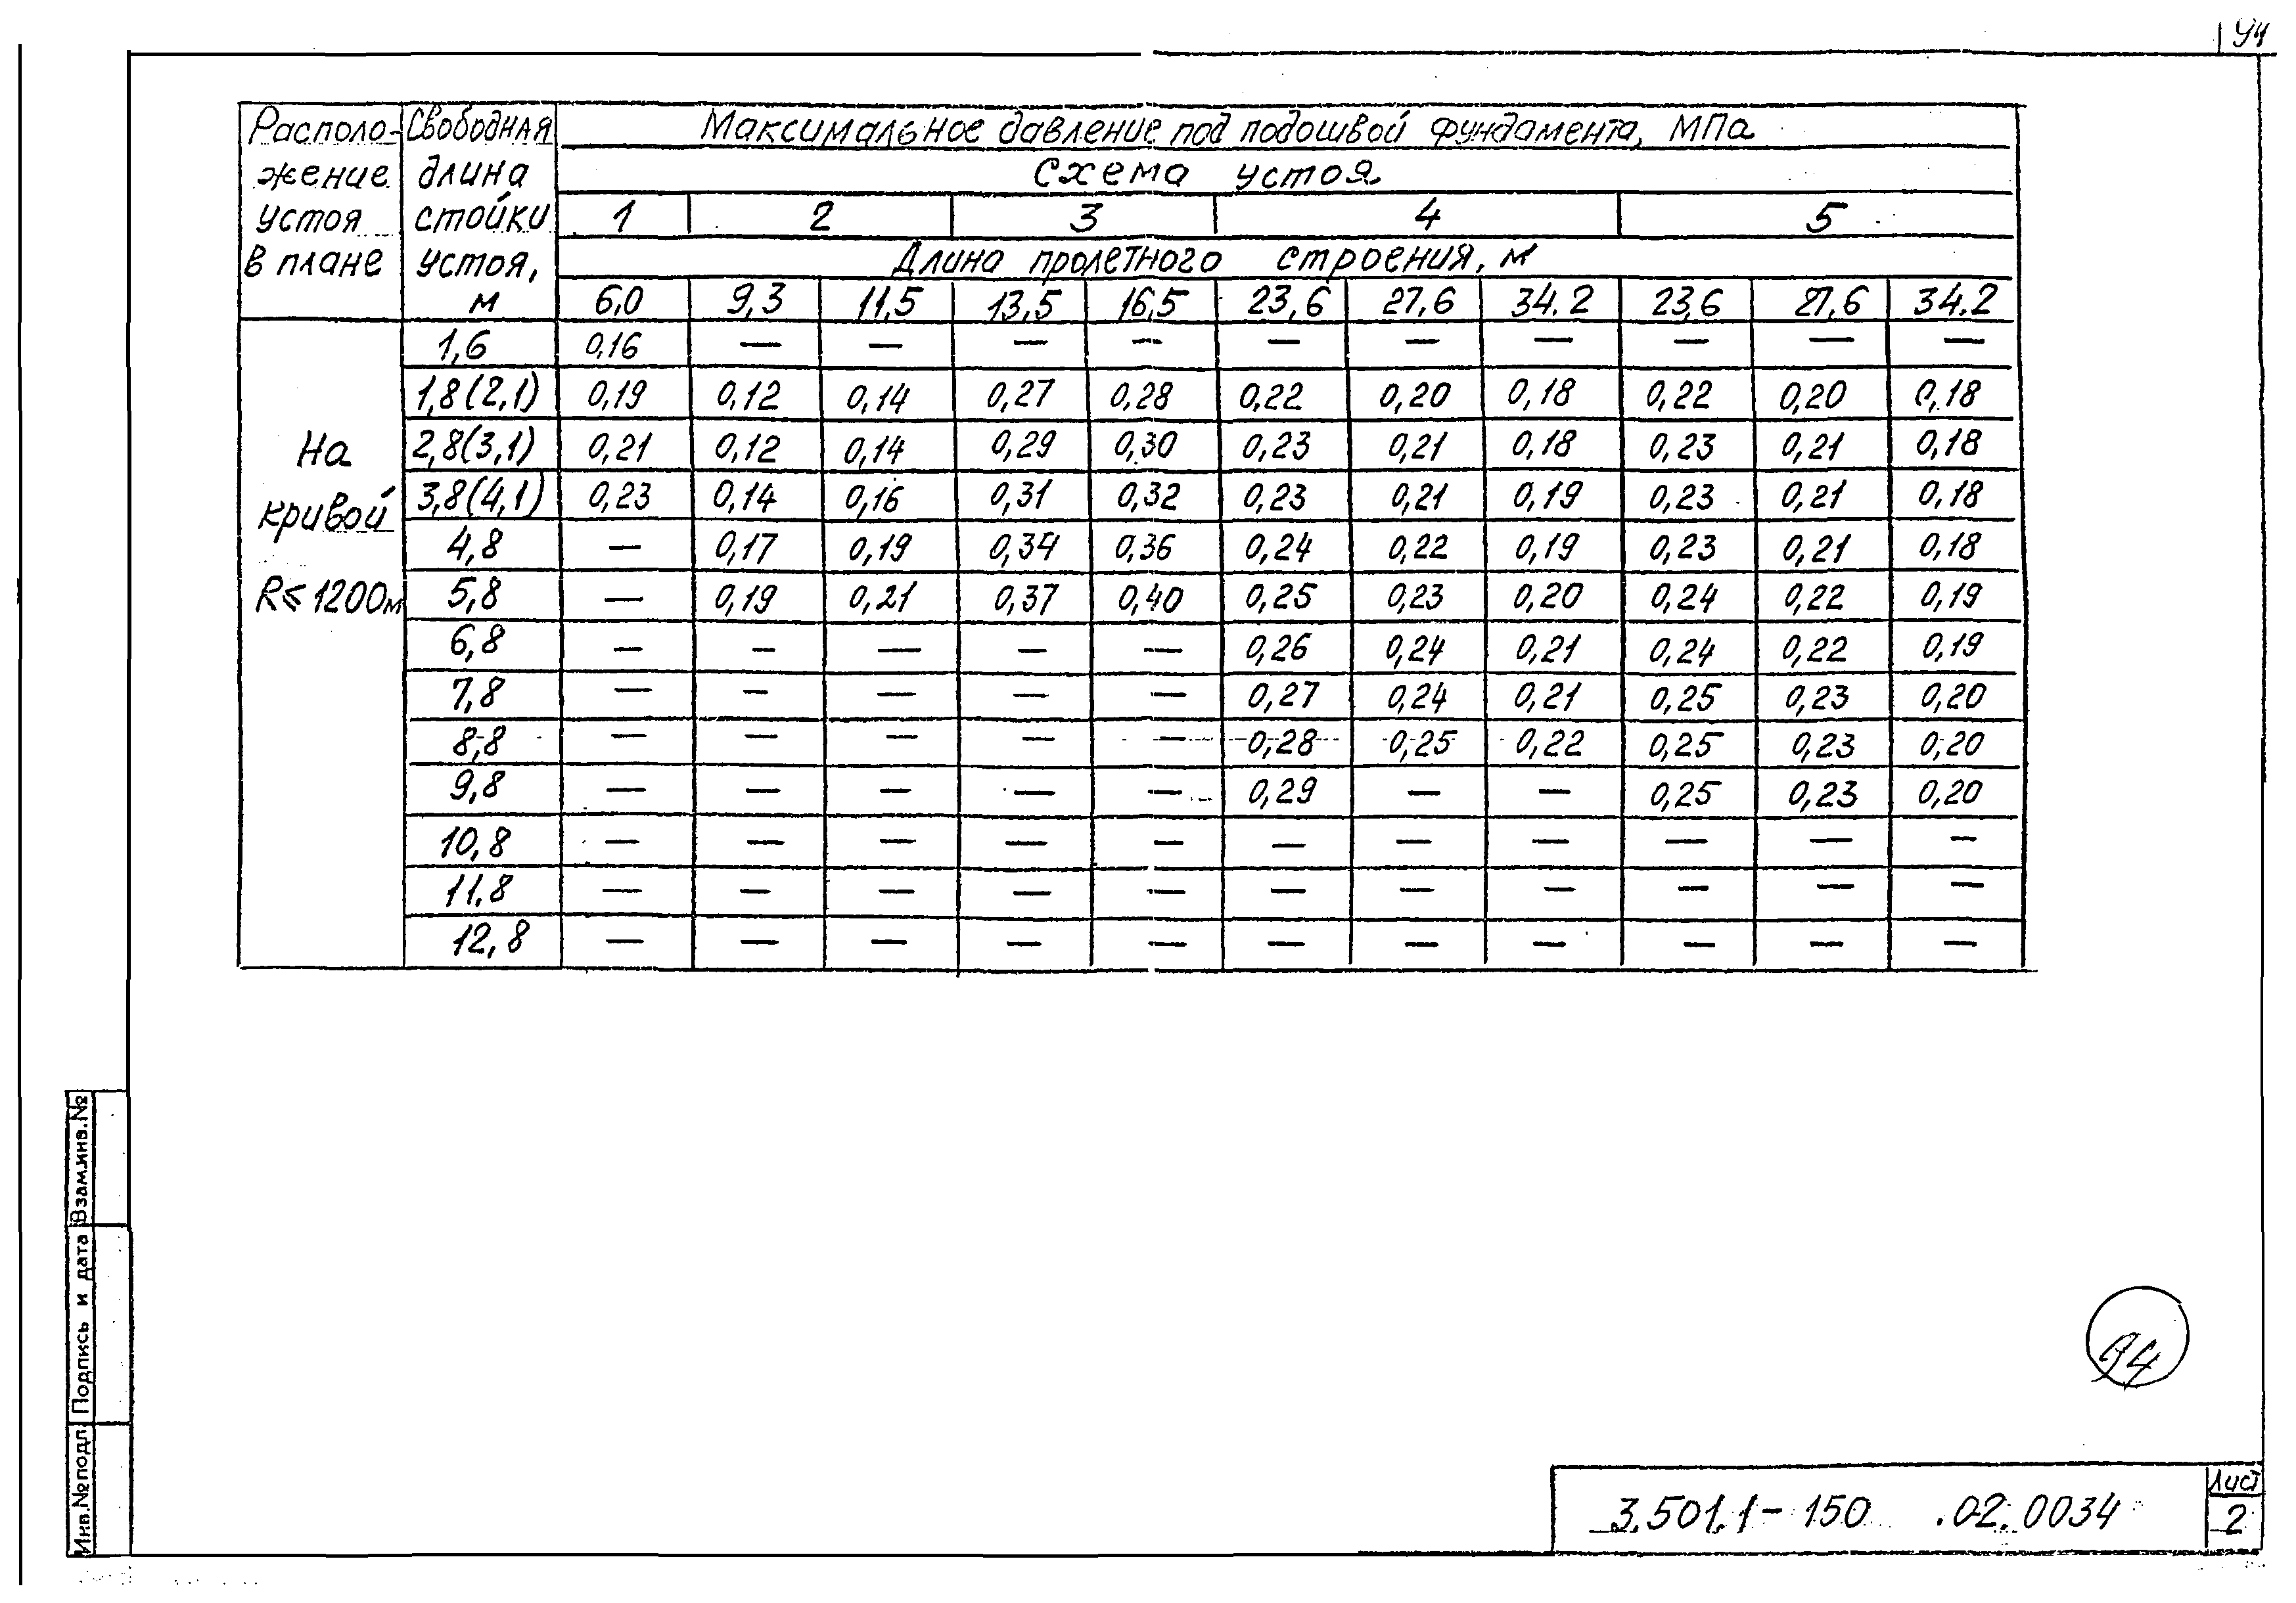 94
Располо- Свободная Максимальное давление под подошвой фундамента, МПа
жение длина Схема устоя
устоя стойки 1 2 3 4 5
в плане устоя, Длина пролетного строения, м
м 6,0 9,3 11,5 13,5 16,5 23,6 27,6 34.2 23,6 27,6 34.2
1,6 0,16 — — — — — — — — — —
1,8(2,1) 0,19 0,12 0,14 0,27 0,28 0,22 0,20 0,18 0,22 0,20 0,18
На 2,8(3,1) 0,21 0,12 0,14 0,29 0,30 0,23 0,21 0,18 0,23 0,21 0,18
кривой 3,8(4,1) 0,23 0,14 0,16 0,31 0,32 0,23 0,21 0,19 0,23 0,21 0,18
4,8 — 0,17 0,19 0,34 0,36 0,24 0,22 0,19 0,23 0,21 0,18
R≤1200м 5,8 — 0,19 0,21 0,37 0,40 0,25 0,23 0,20 0,24 0,22 0,19
6,8 — — — — — 0,26 0,24 0,21 0,24 0,22 0,19
7,8 — — — — — 0,27 0,24 0,21 0,25 0,23 0,20
8,8 — — — — — 0,28 0,25 0,22 0,25 0,23 0,20
9,8 — — — — — 0,29 — — 0,25 0,23 0,20
10,8 — — — — — — — — — — —
11,8 — — — — — — — — — — —
12,8 — — — — — — — — — — —
Взам.инв.№
Подпись и дата
Инв.№подл.
94
3.501.1-150 .02.0034
Лист
2